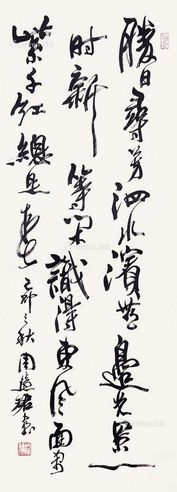 勝日尋芳泗水濱無邊光景一
时新等闲識得東風面萬
紫千紅總是春
己卯之秋周